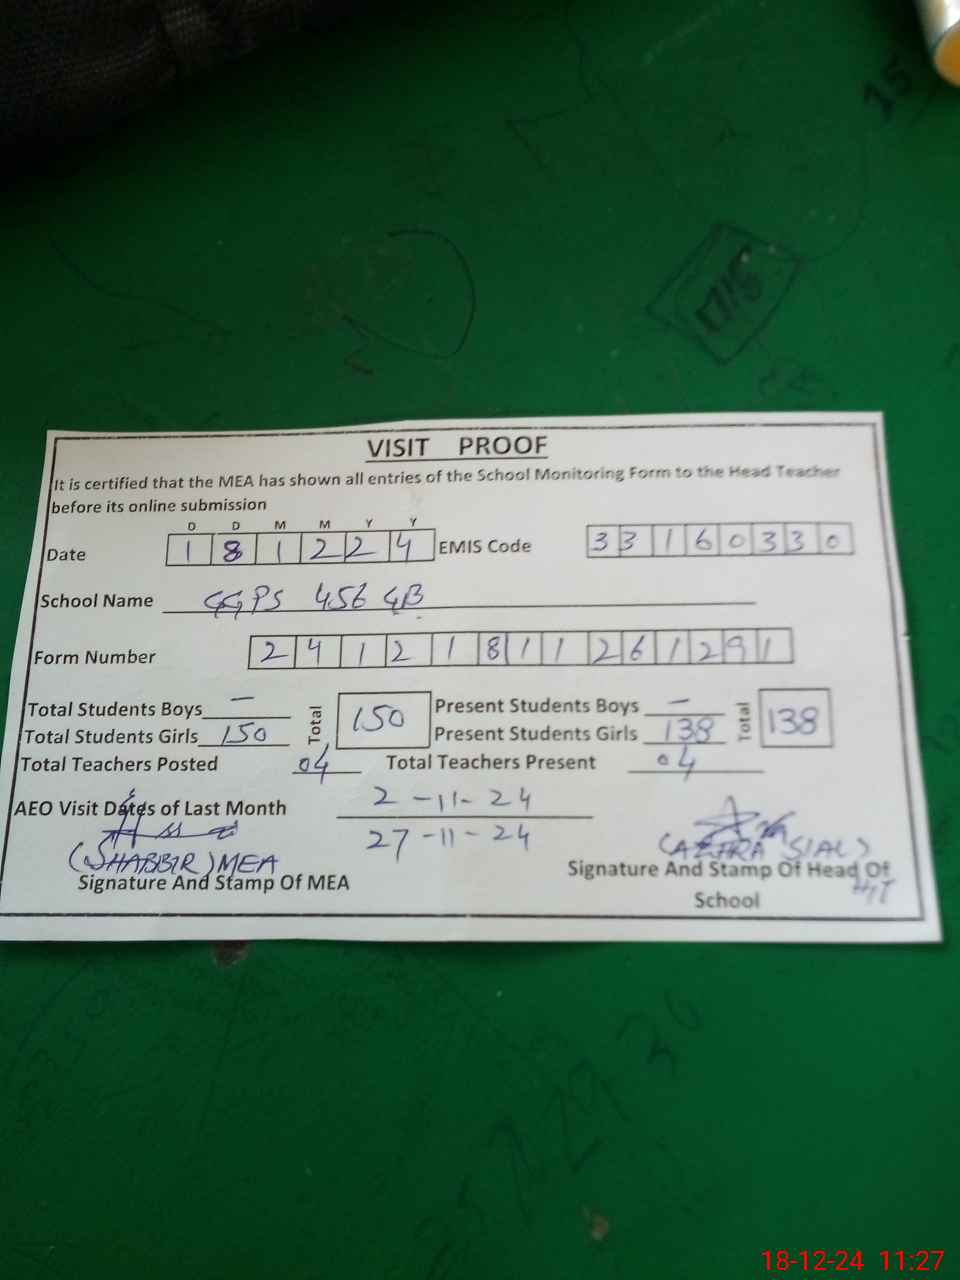 VISIT PROOF
It is certified that the MEA has shown all entries of the School Monitoring Form to the Head Teacher
before its online submission
D D M M Y Y
Date 1 8 1 2 2 4 EMIS Code 3 3 1 6 0 3 3 0
School Name GGPS 456 GB
Form Number 2 4 1 2 1 8 1 1 2 6 1 2 9 1
Total Students Boys — Total 150 Present Students Boys — Total 138
Total Students Girls 150 Present Students Girls 138
Total Teachers Posted 04 Total Teachers Present 04
AEO Visit Dates of Last Month 2-11-24
27-11-24
(SHABBIR) MEA (AZHRA SIAL)
Signature And Stamp Of MEA Signature And Stamp Of Head Of
School
18-12-24 11:27